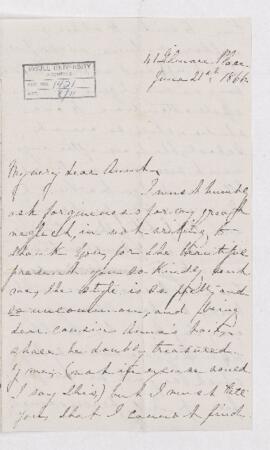 McGILL UNIVERSITY
ARCHIVES
ACC. NO. 1421
REF. 8/11
41 Gilmore Place
June 21st, 1866
My very dear Aunt
I must humbly
ask forgiveness for my great
neglect, in not writing to
thank you for the beautiful
present you so kindly sent
me, the style is so pretty and
so uncommon, and being
dear cousin Anna's hair,
shall be doubly treasured
by me, (what
I say this) but I must tell
you, that I cannot find